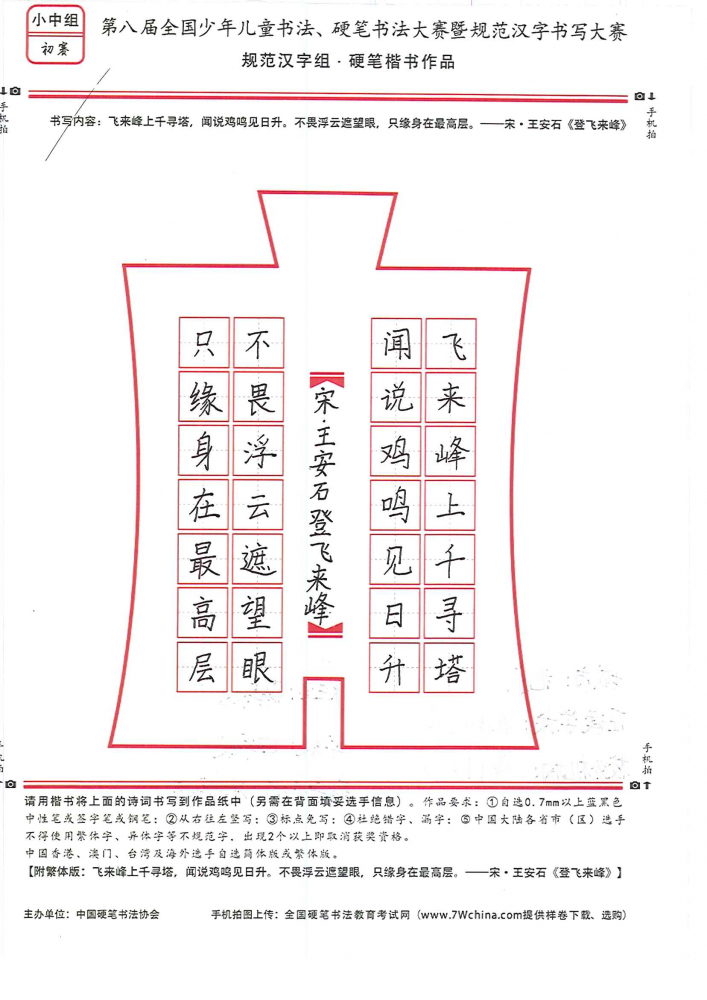 小中组
初赛
第八届全国少年儿童书法、硬笔书法大赛暨规范汉字书写大赛
规范汉字组·硬笔楷书作品
手机拍
手机拍
书写内容：飞来峰上千寻塔，闻说鸡鸣见日升。不畏浮云遮望眼，只缘身在最高层。——宋·王安石《登飞来峰》
飞来峰上千寻塔
闻说鸡鸣见日升
宋·王安石登飞来峰
不畏浮云遮望眼
只缘身在最高层
手机拍
手机拍
请用楷书将上面的诗词书写到作品纸中（另需在背面填妥选手信息）。作品要求：①自选0.7mm以上蓝黑色
中性笔或签字笔或钢笔；②从右往左竖写；③标点免写；④杜绝错字、漏字；⑤中国大陆各省市（区）选手
不得使用繁体字、异体字等不规范字，出现2个以上即取消获奖资格。
中国香港、澳门、台湾及海外选手自选简体版或繁体版。
【附繁体版：飞来峰上千寻塔，闻说鸡鸣见日升。不畏浮云遮望眼，只缘身在最高层。——宋·王安石《登飞来峰》】
主办单位：中国硬笔书法协会 手机拍图上传：全国硬笔书法教育考试网（www.7Wchina.com提供样卷下载、选购）